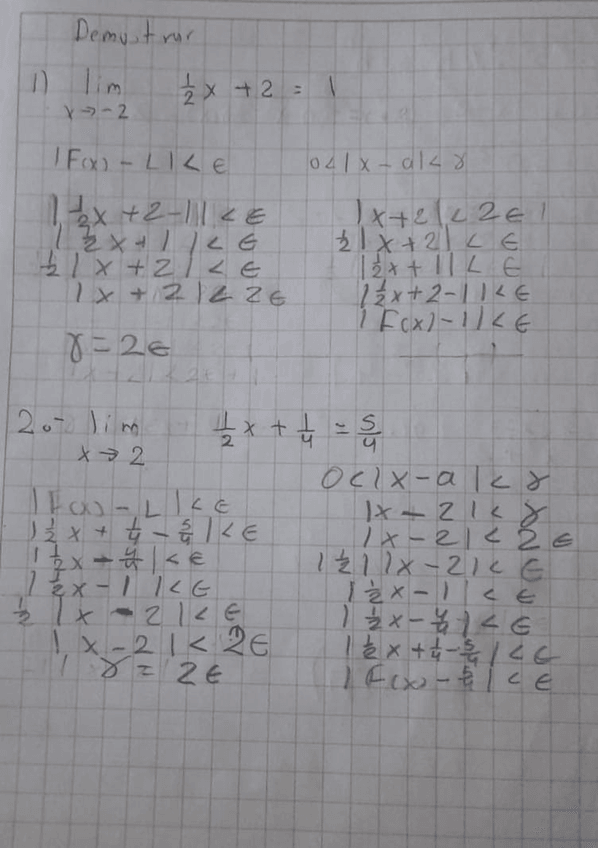 Demostrar
1) lim x→-2 ½x + 2 = 1
|F(x) - L| < ε
0 < |x - a| < γ
|½x + 2 - 1| < ε
|½x + 1| < ε
½|x + 2| < ε
|x + 2| < 2ε
γ = 2ε
|x + 2| < 2ε
½|x + 2| < ε
|½x + 1| < ε
|½x + 2 - 1| < ε
|F(x) - 1| < ε
2.- lim x→2 ½x + ¼ = 5/4
|F(x) - L| < ε
|½x + ¼ - 5/4| < ε
|½x - 4/4| < ε
|½x - 1| < ε
½|x - 2| < ε
|x - 2| < 2ε
γ = 2ε
0 < |x - a| < γ
|x - 2| < γ
|x - 2| < 2ε
|½||x - 2| < ε
|½x - 1| < ε
|½x - 4/4| < ε
|½x + ¼ - 5/4| < ε
|F(x) - 5/4| < ε